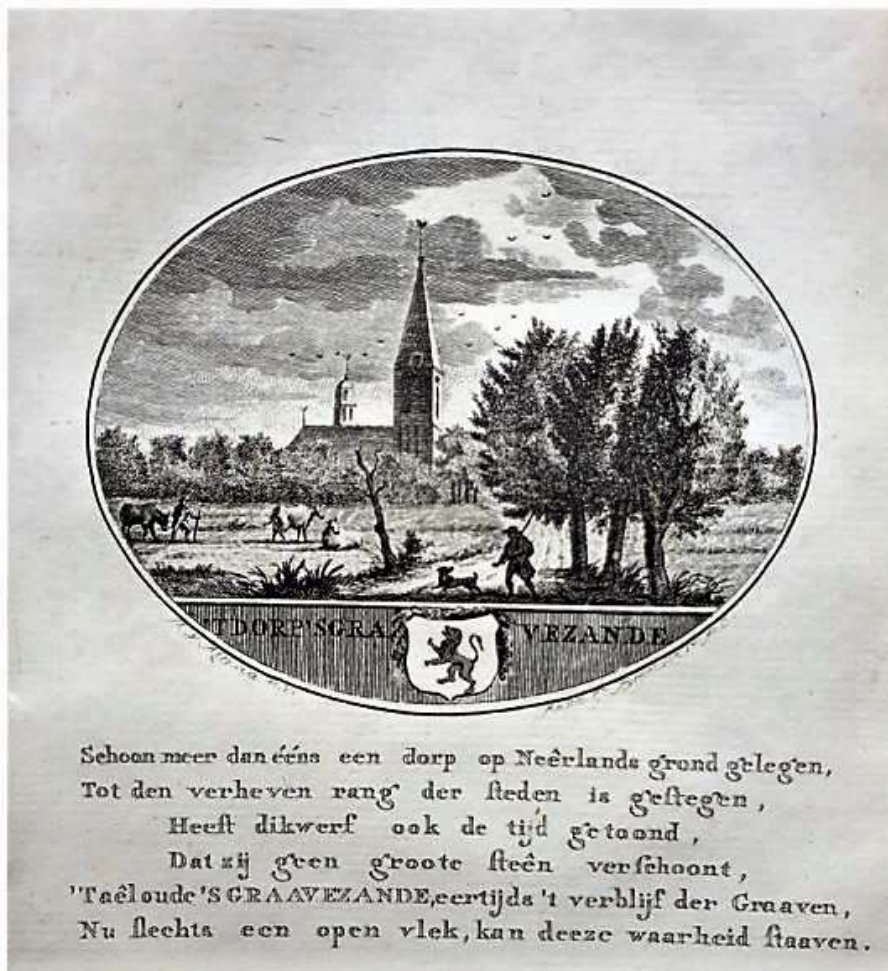 'TDORP'SGRAVEZANDE
Schoon meer dan ééns een dorp op Neêrlands grond gelegen,
Tot den verheven rang der ſteden is geſtegen,
Heeft dikwerf ook de tijd getoond,
Dat zij geen groote ſteên verſchoont,
'Taêloude 'SGRAAVEZANDE, eertijds 't verblijf der Graaven,
Nu ſlechts een open vlek, kan deeze waarheid ſtaaven.